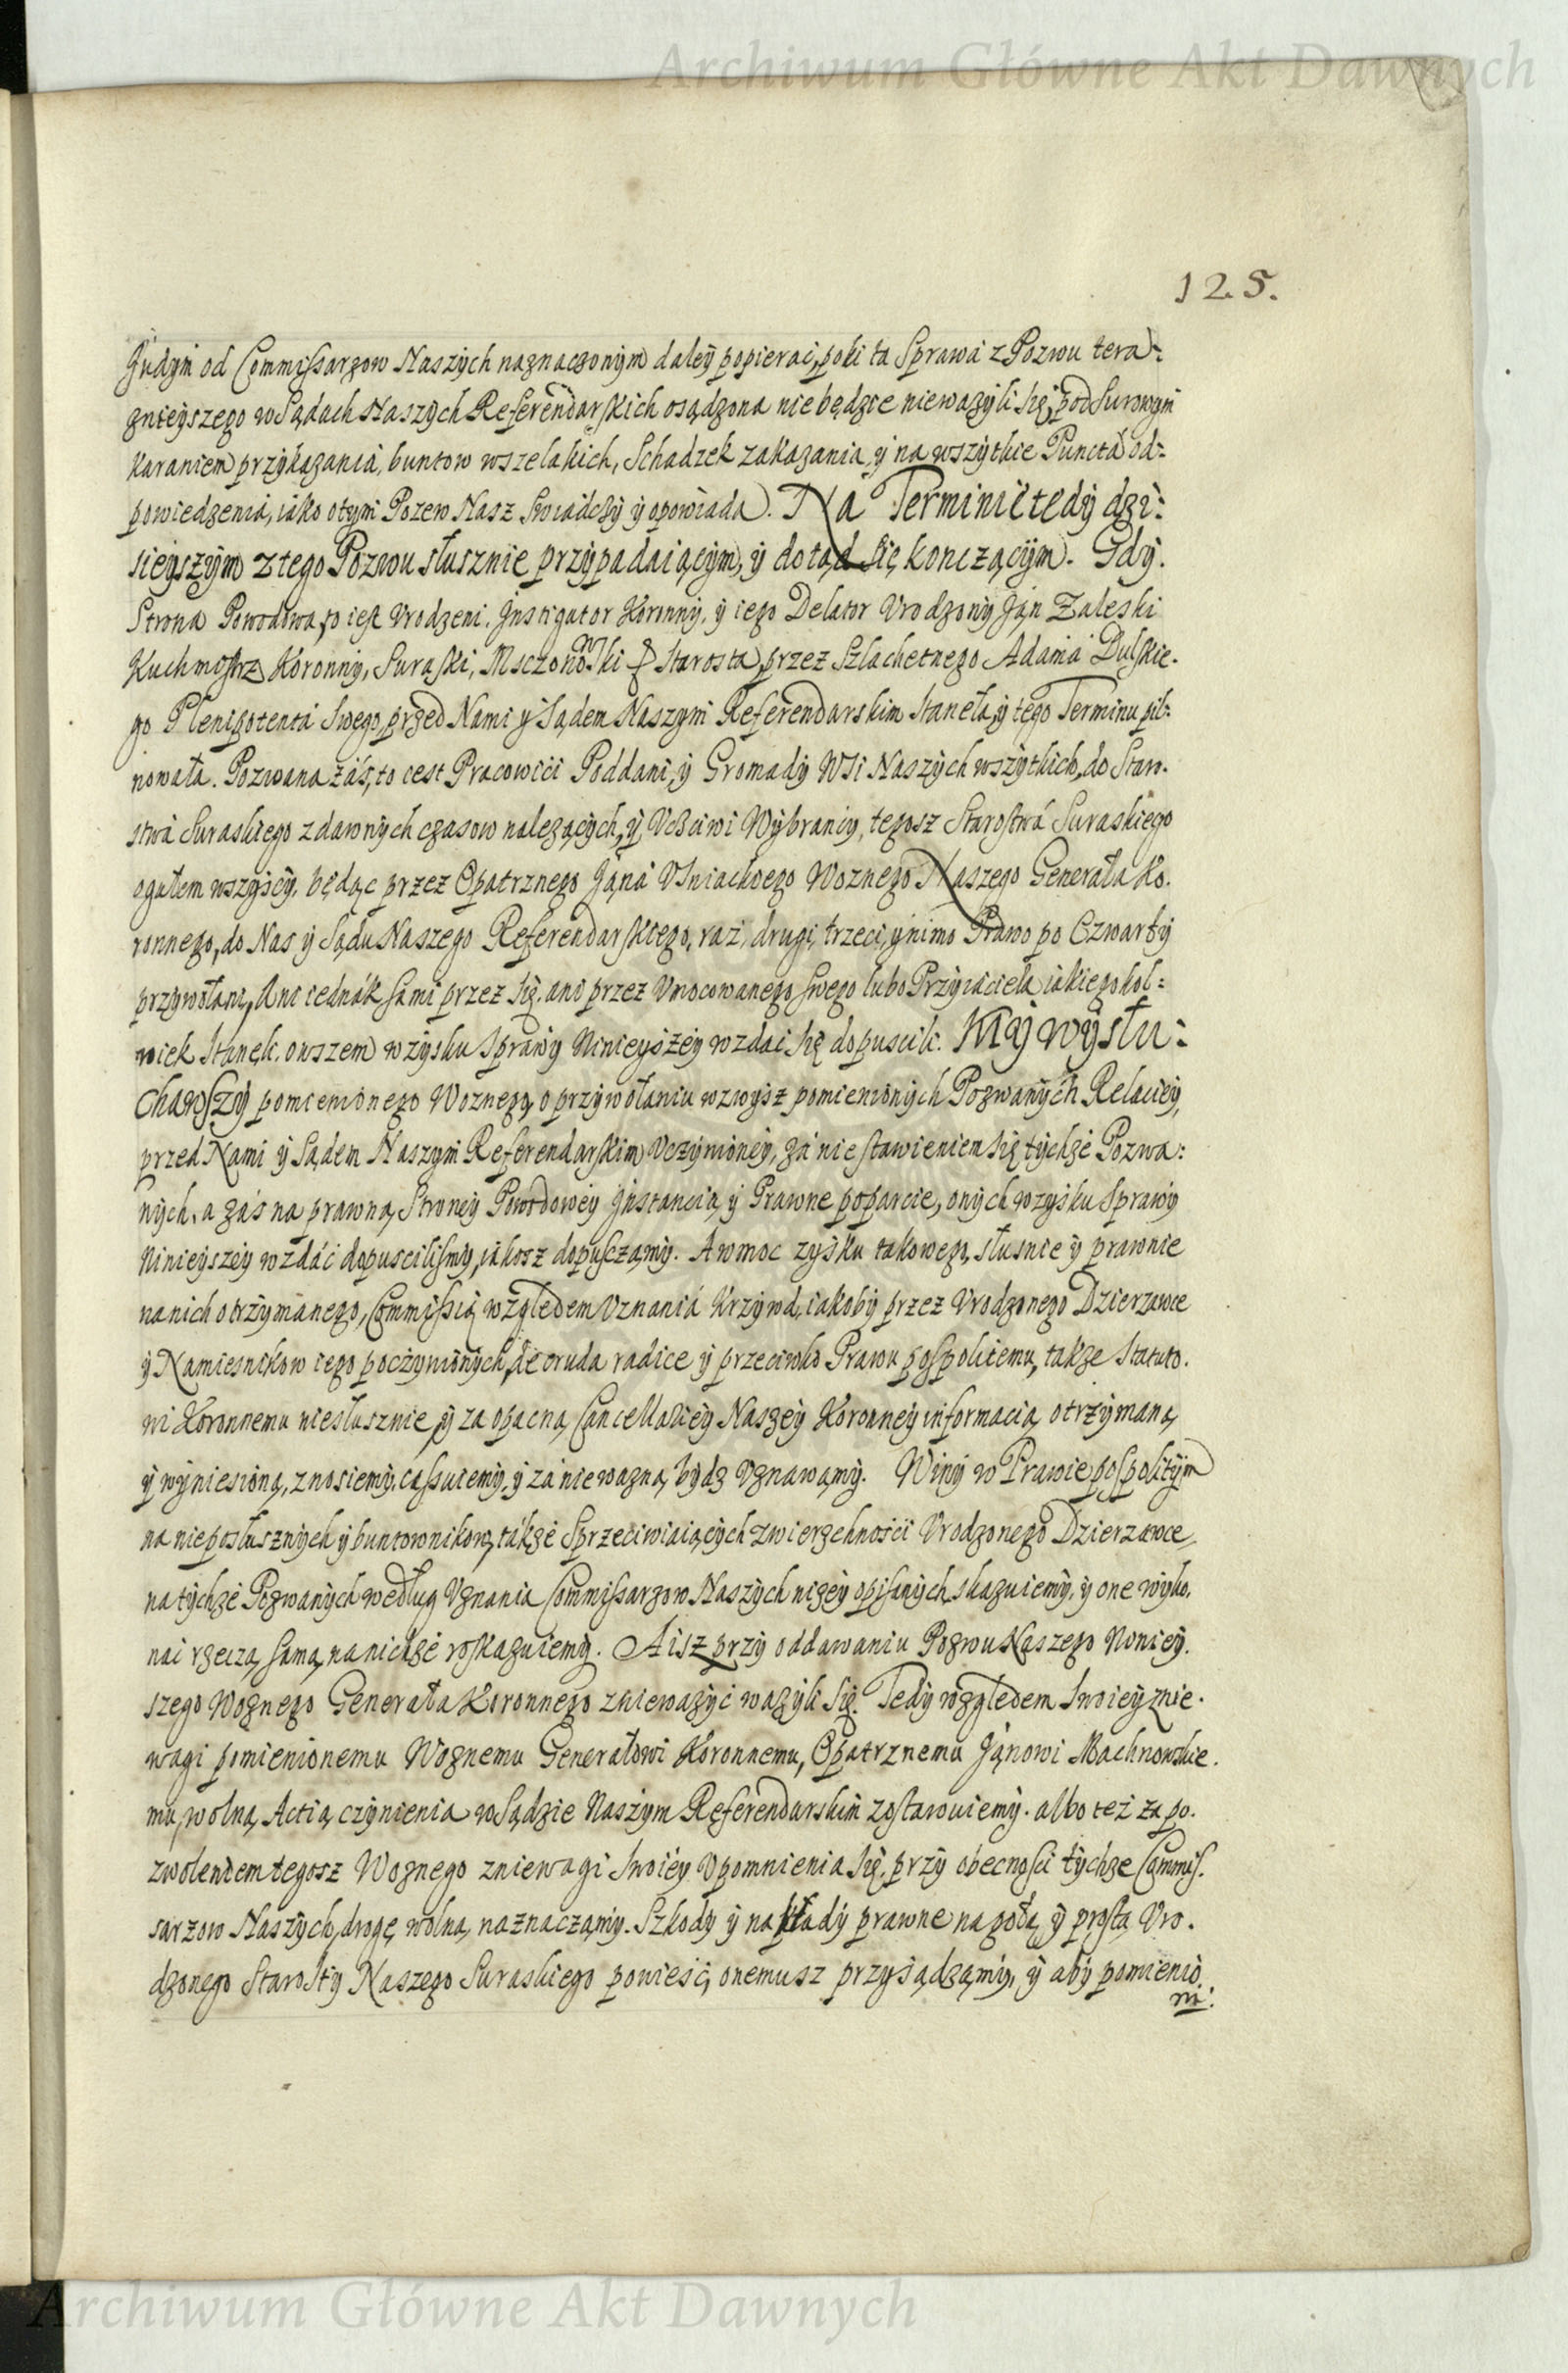 Archiwum Główne Akt Dawnych
125.
Jndym od Commissarzow Naszych naznaczonym daley popierac, poki ta Sprawa z Pozwu tera-
znieyszego w Sądach Naszych Referendarskich osądzona nie będzie nie ważyli się, pod surowym
karaniem przykazania, buntow wszelakich, Schadzek zakazania, y na wszytkie Puncta od:
powiedzenia, iako o tym Pozew Nasz Swiadczy y opowiada. Na Terminie tedy dzi:
sieyszym z tego Pozwu słusznie przypadaiącym, y dotąd się konczącym. Gdy.
Strona Powodowa, to iest Vrodzeni, Jnstigator Koronny, y iego Delator Vrodzony Jan Zaleski
Kuchmistrz Koronny, Suraski, Msczonowski Starosta, przez Szlachetnego Adama Dulskie-
go Plenipotenta Swego, przed Nami y Sądem Naszym Referendarskim staneła, y tego Terminu pil:
nowała. Pozwana záś, to iest Pracowici Poddani, y Gromady Wsi Naszych wszytkich, do Staro-
stwá Suraskiego z dawnych czasow należących, y Vcściwi Wybrancy, tegosz Starostwá Suraskiego
ogułem wszyscy, będąc przez Opatrznego Jąná Vśniackiego Woznego Naszego Generała Ko-
ronnego, do Nas y Sądu Naszego Referendarskiego, raz, drugi, trzeci, y nimo Prawo po Czwarty
przywołani, Ani iednák sami przez się, ani przez Vmocowanego swego lubo Przyiaciela iakiegokol=
wiek staneli, owszem w zysku Sprawy Ninieyszey wzdać się dopuscili. My wysłu:
chawszy pomienionego Woznego, o przywołaniu wzwysz pomienionych Pozwanych Relaciey,
przed Nami y Sądem Naszym Referendarskim Vczynioney, zá nie stawieniem się tychże Pozwa:
nych, a záś na prawną Strony Powodowey Jnstancią, y Prawne poparcie, onych w zysku Sprawy
Ninieyszey wzdáć dopuscilismy, iakosz dopusczamy. A w moc zysku takowego, słusnie y prawnie
na nich otrzymanego, Commissią względem Vznaniá Krzywd, iakoby przez Vrodzonego Dzierzawce
y Namiesnikow iego poczynionych, de cruda radice y przeciwko Prawu pospolitemu, takze Statuto-
wi Koronnemu niesłusznie, y za opaczną Cancellariey Naszey Koronney informacią otrzymaną,
y wyniesioną, znosiemy, cassuiemy, y zá nie wazną bydz Vznawamy. Winy w Prawie pospolitym
na nieposłusznych y buntownikow, tákze Sprzeciwiaiących zwierzchności Vrodzonego Dzierzawce,
na tychże Pozwanych według Vznania Commissarzow Naszych niżey opisanych, skazuiemy, y one wyko-
nać rzeczą samą na nichże roskazuiemy. A isz przy oddawaniu Pozwu Naszego Niniey-
szego Woznego Generała Koronnego zniewazyć wazyli się. Tedy względem Swoiey znie-
wagi pomienionemu Woznemu Generałowi Koronnemu, Opatrznemu Jánowi Machnowskie-
mu, wolną Actią czynienia w Sądzie Naszym Referendarskim zostawuiemy. albo też za po-
zwoleniem tegosz Woznego zniewagi Swoiey Vpomnienia się, przy obecnosci tychze Commis-
sarzow Naszych, drogę wolną naznaczamy. Szkody y nakłady prawne na gołą y prostą Vro-
dzonego Starosty Naszego Suraskiego powieść, onemusz przysądzamy, y aby pomienio-
ni:
Archiwum Główne Akt Dawnych